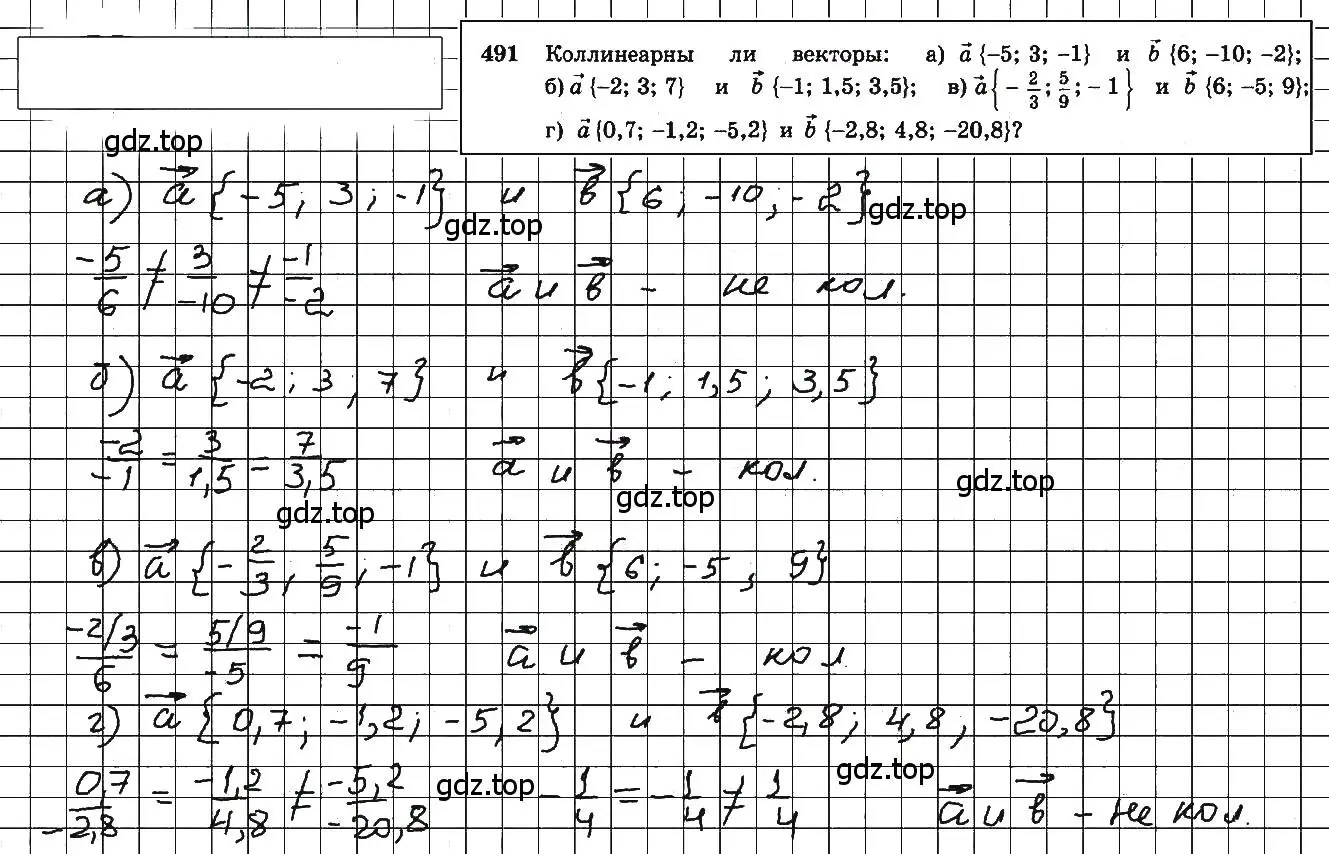 491 Коллинеарны ли векторы: а) a⃗ {−5; 3; −1} и b⃗ {6; −10; −2};
б) a⃗ {−2; 3; 7} и b⃗ {−1; 1,5; 3,5}; в) a⃗ {−2/3; 5/9; −1} и b⃗ {6; −5; 9};
г) a⃗ {0,7; −1,2; −5,2} и b⃗ {−2,8; 4,8; −20,8}?
gdz.top
а) a⃗ {−5; 3; −1} и в⃗ {6; −10; −2}
gdz.top
gdz.top
−5/6 ≠ 3/−10 ≠ −1/−2 a⃗ и в⃗ − не кол.
б) a⃗ {−2; 3, 7} и в⃗ {−1; 1,5; 3,5}
−2/−1 = 3/1,5 = 7/3,5 a⃗ и в⃗ − кол.
gdz.top
gdz.top
gdz.top
в) a⃗ {−2/3, 5/9, −1} и в⃗ {6; −5, 9}
−2/3/6 = 5/9/−5 = −1/9 a⃗ и в⃗ − кол
г) a⃗ {0,7; −1,2; −5,2} и в⃗ {−2,8; 4,8, −20,8}
0,7/−2,8 = −1,2/4,8 ≠ −5,2/−20,8 −1/4 = −1/4 ≠ 1/4 a⃗ и в⃗ − не кол.
gdz.top
gdz.top